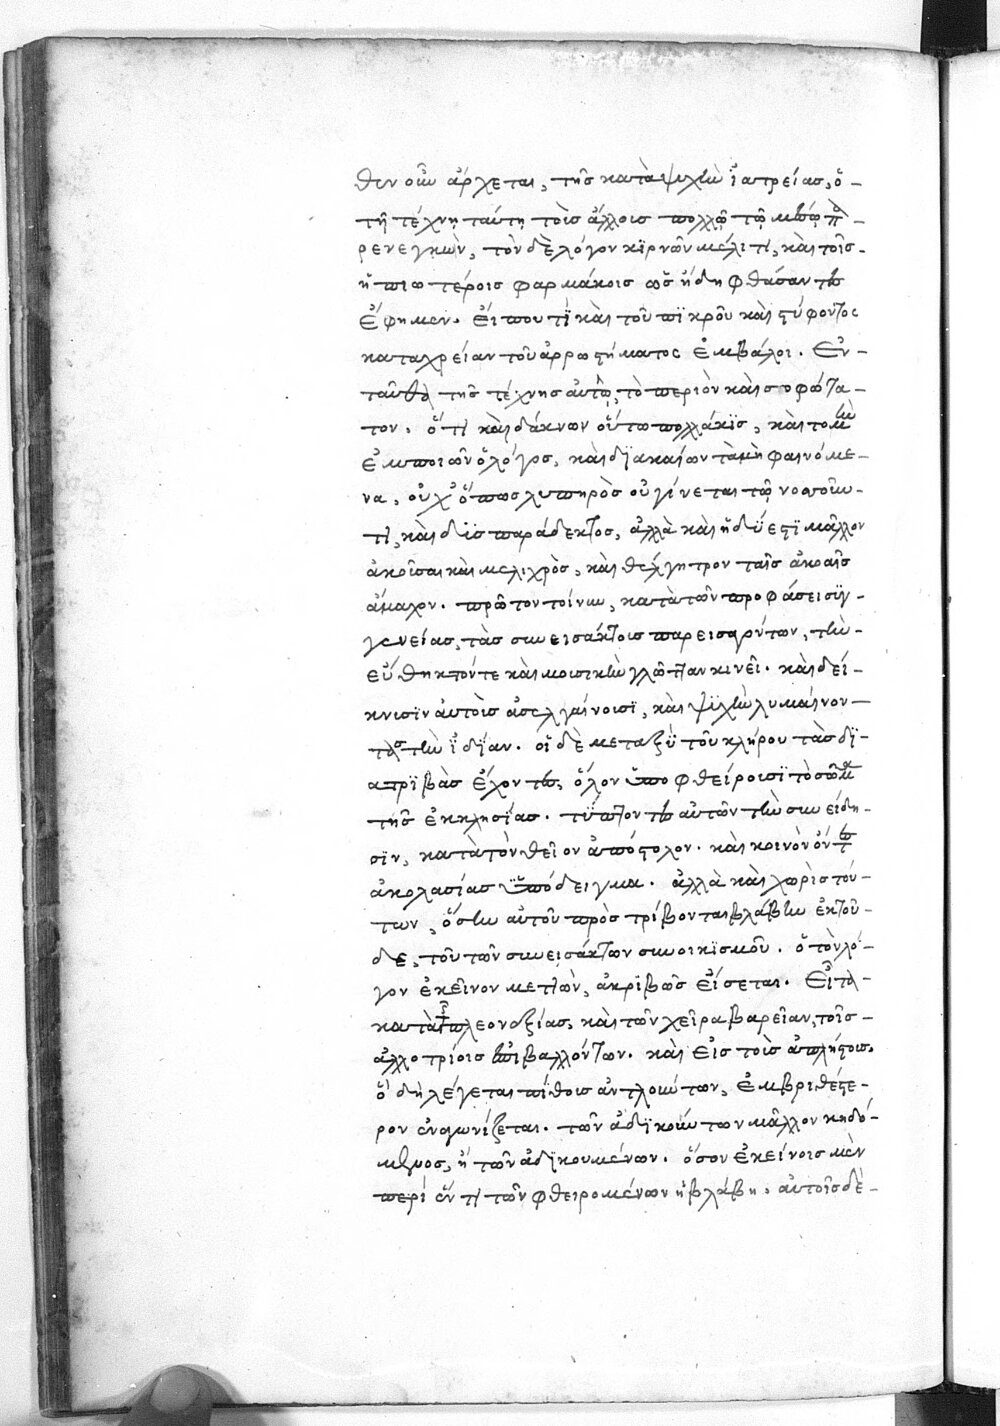 θεν οὖν ἄρχεται, τῆς κατὰ ψυχὴν ἰατρείας, ὁ
τῇ τέχνῃ ταύτῃ τοῖς ἄλλοις πολλῷ τῷ μέσῳ πα
ρενεγκὼν, τὸν δὲ λόγον κιρνῶν μέλιτι, καὶ τοῖς
ἠπιωτέροις φαρμάκοις ὡς ἤδη φθάσαντες
ἔφημεν. εἴ που τὶ καὶ τοῦ πικροῦ καὶ στύφοντος
κατὰ χρείαν τοῦ ἀρρωστήματος ἐμβάλοι. ἐν
ταῦθα τῆς τέχνης αὐτῷ, τὸ περιὸν καὶ σοφώτα
τον. ὅτι καὶ δάκνων οὕτω πολλάκις, καὶ τομὴν
ἐμποιῶν ὁ λόγος, καὶ διακαίων τὰ μὴ φαινόμε
να, οὐχ ὅπως λυπηρὸς οὐ γίνεται τῷ νοσοῦν
τι, καὶ δυσπαράδεκτος, ἀλλὰ καὶ ἡδύς ἐστι μᾶλλον
ἀκοῦσαι καὶ μελιχρὸς, καὶ θέλγητρον ταῖς ἀκοαῖς
ἄμαχον. πρῶτον τοίνυν, κατὰ τῶν προφάσει συγ
γενείας, τὰς συνεισάκτους παρεισαγόντων, τὴν
εὔθηκτόν τε καὶ μουσικὴν γλῶτταν κινεῖ. καὶ δεί
κνυσιν αὐτοὺς ἀσελγαίνουσι, καὶ ψυχὴν λυμαίνον
τας τὴν ἰδίαν. οἳ δὲ μεταξὺ τοῦ κλήρου τὰς δι
ατριβὰς ἔχοντες, ὅλον ὑποφθείρουσι τὸ σῶμα
τῆς ἐκκλησίας. τύπτοντες αὐτῶν τὴν συνείδη
σιν, κατὰ τὸν θεῖον ἀπόστολον. καὶ κοινὸν ὄντες
ἀκολασίας ὑπόδειγμα. ἀλλὰ καὶ χωρὶς τού
των, ὅσην αὐτοῦ προστρίβονται βλάβην ἐκ τοῦ
δε, τοῦ τῶν συνεισάκτων συνοικισμοῦ. ὁ τὸν λό
γον ἐκεῖνον μετιὼν, ἀκριβῶς εἴσεται. εἶτα
κατὰ τῆς πλεονεξίας, καὶ τῶν χεῖρα βαρεῖαν, τοῖς
ἀλλοτρίοις ἐπιβαλλόντων. καὶ εἰς τοὺς ἀπλήστους,
ὃ δὴ λέγεται πίθους ἀντλούντων, ἐμβριθέστε
ρον ἀγωνίζεται. τῶν ἀδικούντων μᾶλλον κηδό
μενος, ἢ τῶν ἀδικουμένων. ὅσον ἐκείνοις μὲν
περί ἕν τι τῶν φθειρομένων ἡ βλάβη, αὐτοῖς δὲ